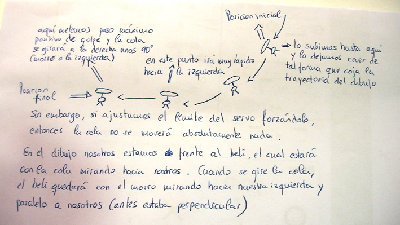 Posicion inicial
aquí metemos paso máximo
positivo de golpe y la cola
se girará a la derecha unos 90º
(morro a la izquierda)
en este punto irá muy rápido
hacia la izquierda
lo subimos hasta aquí
y lo dejamos caer de
tal forma que coja la
trayectoria del dibujo
Posicion
final
Sin embargo, si ajustamos el límite del servo forzándolo,
entonces la cola no se moverá absolutamente nada.
En el dibujo nosotros estamos frente al heli, el cual estará
con la cola mirando hacia nosotros. Cuando se gire la cola,
el heli quedará con el morro mirando hacia nuestra izquierda y
paralelo a nosotros (antes estaba perpendicular)